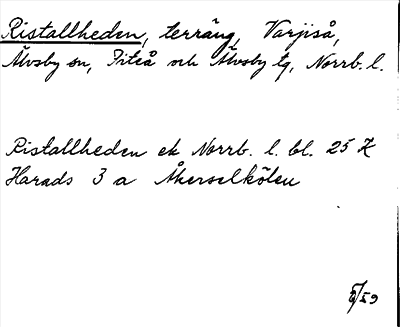 Ristallheden, terräng, Varjiså,
Älvsby sn, Piteå och Älvsby tg, Norrb. l.
Ristallheden ek Norrb. l. bl. 25 K
Harads 3 a Åkerselkölen
6/59